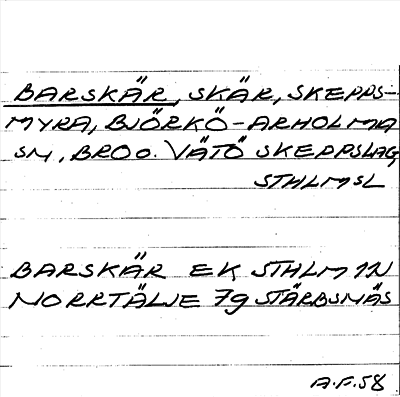 BARSKÄR, SKÄR, SKEPPS-
MYRA, BJÖRKÖ-ARHOLMA
SN, BRO O. VÄTÖ SKEPPSLAG,
STHLMSL
BARSKÄR EK STHLM 1N
NORRTÄLJE 7g STÄRBSNÄS
A.F.58